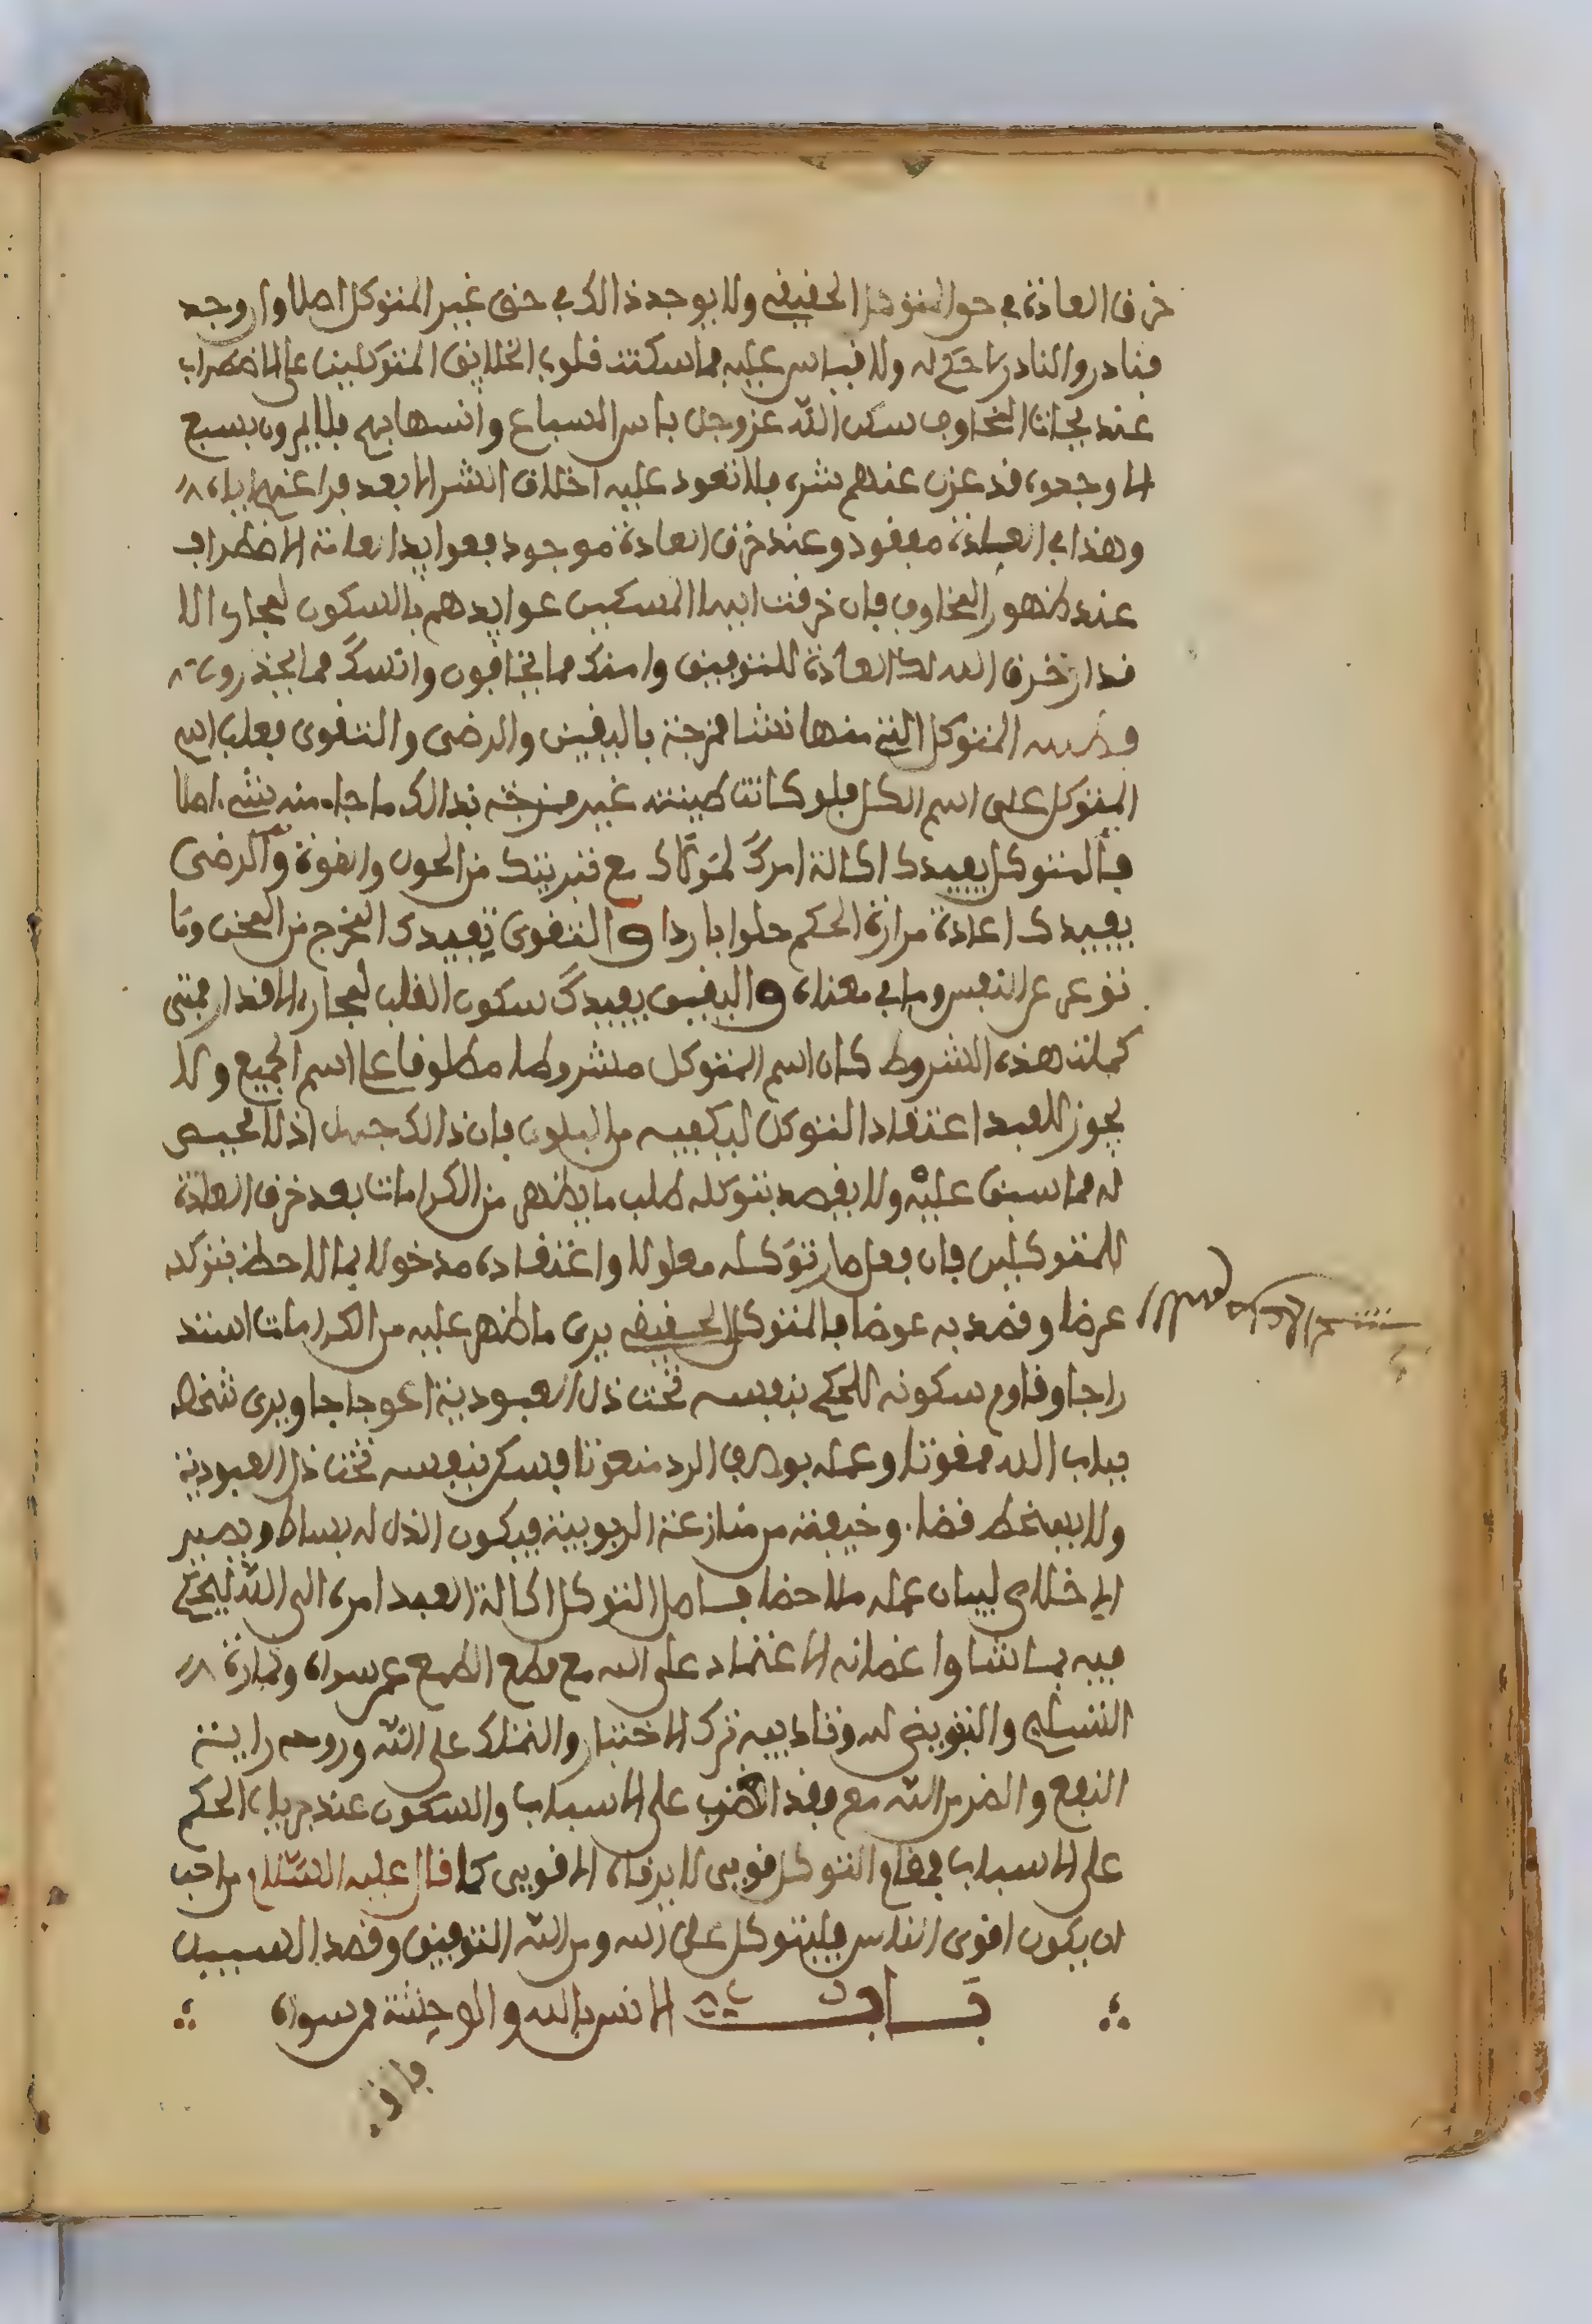 خرق العادة في حق المتوكل الحقيقي ولا يوجد ذالك في حق غير المتوكل اصلا وان وجد
فنادر والنادر لا حكم له ولا قياس عليه فما سكنت قلوب الخلايق المتوكلين على الاضطراب
عند المخاوف سكن الله عز وجل باس السباع وانسها بهم فلا يمرون بسبع
الا وجدوه قد عزل عنهم شره فلا تعود عليه اخلاق الشر الا بعد فراغهم اياه
وهذا في العادة مفقود وعند خرق العادة موجود فعوايد العامة الاضطراب
عند ظهور المخاوف فان خرقت ايها المسكين عوايدهم بالسكون لمجاري الا
قدار خرق الله لك العادة للتوفيق وامنك مما يخافون وانسك مما يحذرون
المتوكل التي منها نشا مزجت باليقين والرضى والتقوى فغلب اسم
المتوكل على اسم الكل فلو كانت طينته غير مزجة بذالك ما جاء منه شيء اصلا
فالمتوكل يفيدك اكالة امرك لمولاك مع تبريك من الحول والقوة والرضى
يفيدك اعادة مرارة الحكم حلوا باردا والتقوى يفيدك الخرج من المحن وما
عن النفس وما في معناه واليقين يفيدك سكون القلب لمجاري الاقدار فمتى
كملت هذه الشروط كان اسم المتوكل مشروطا مطلوقا على اسم الجميع ولا
يجوز للعبد اعتقاد التوكل ليكفيه من البلوى فان ذالك جهل اذ لا محيص
له مما سبق عليه ولا يقصد بتوكله طلب ما يظهر من الكرامات بعد خرق العادة
للمتوكلين فان فعل صار توكله معلولا واعتقاده مدخولا لما لاحظ بتوكله
عرضا وقصد به عوضا فالمتوكل الحقيقي يرى ما ظهر عليه من الكرامات استد
راجا وقاوم سكونه للحكم بنفسه تحت ذل العبودية اعوجاجا ويرى شخصه
بباب الله ممقوتا وعمله بوصف الرد منعوتا فيسكن بنفسه تحت ذل العبودية
ولا يسخط قضاء وخيفة من منازعة الربوبية فيكون الذل له بساطا ويصير
الاخلاص لبيان عمله ملاحضا فاصل التوكل اكالة العبد امره الى الله ليحكم
فيه بما شا واغصانه الاعتماد على الله مع قطع الطمع عن سواه وثماره
التسليم والتفويض له ترك الاختيار والتملك على الله وروحه راية
النفع والضر من الله مع فقد على الاسباب والسكون عند جريان الحكم
على الاسباب فمقام التوكل قوي لا يرقاه الا قوي كما قال عليه السلام من احب
ان يكون اقوى الناس فليتوكل على الله ومن الله التوفيق وقصد السبيل
باب الانس بالله والوحشة من سواه